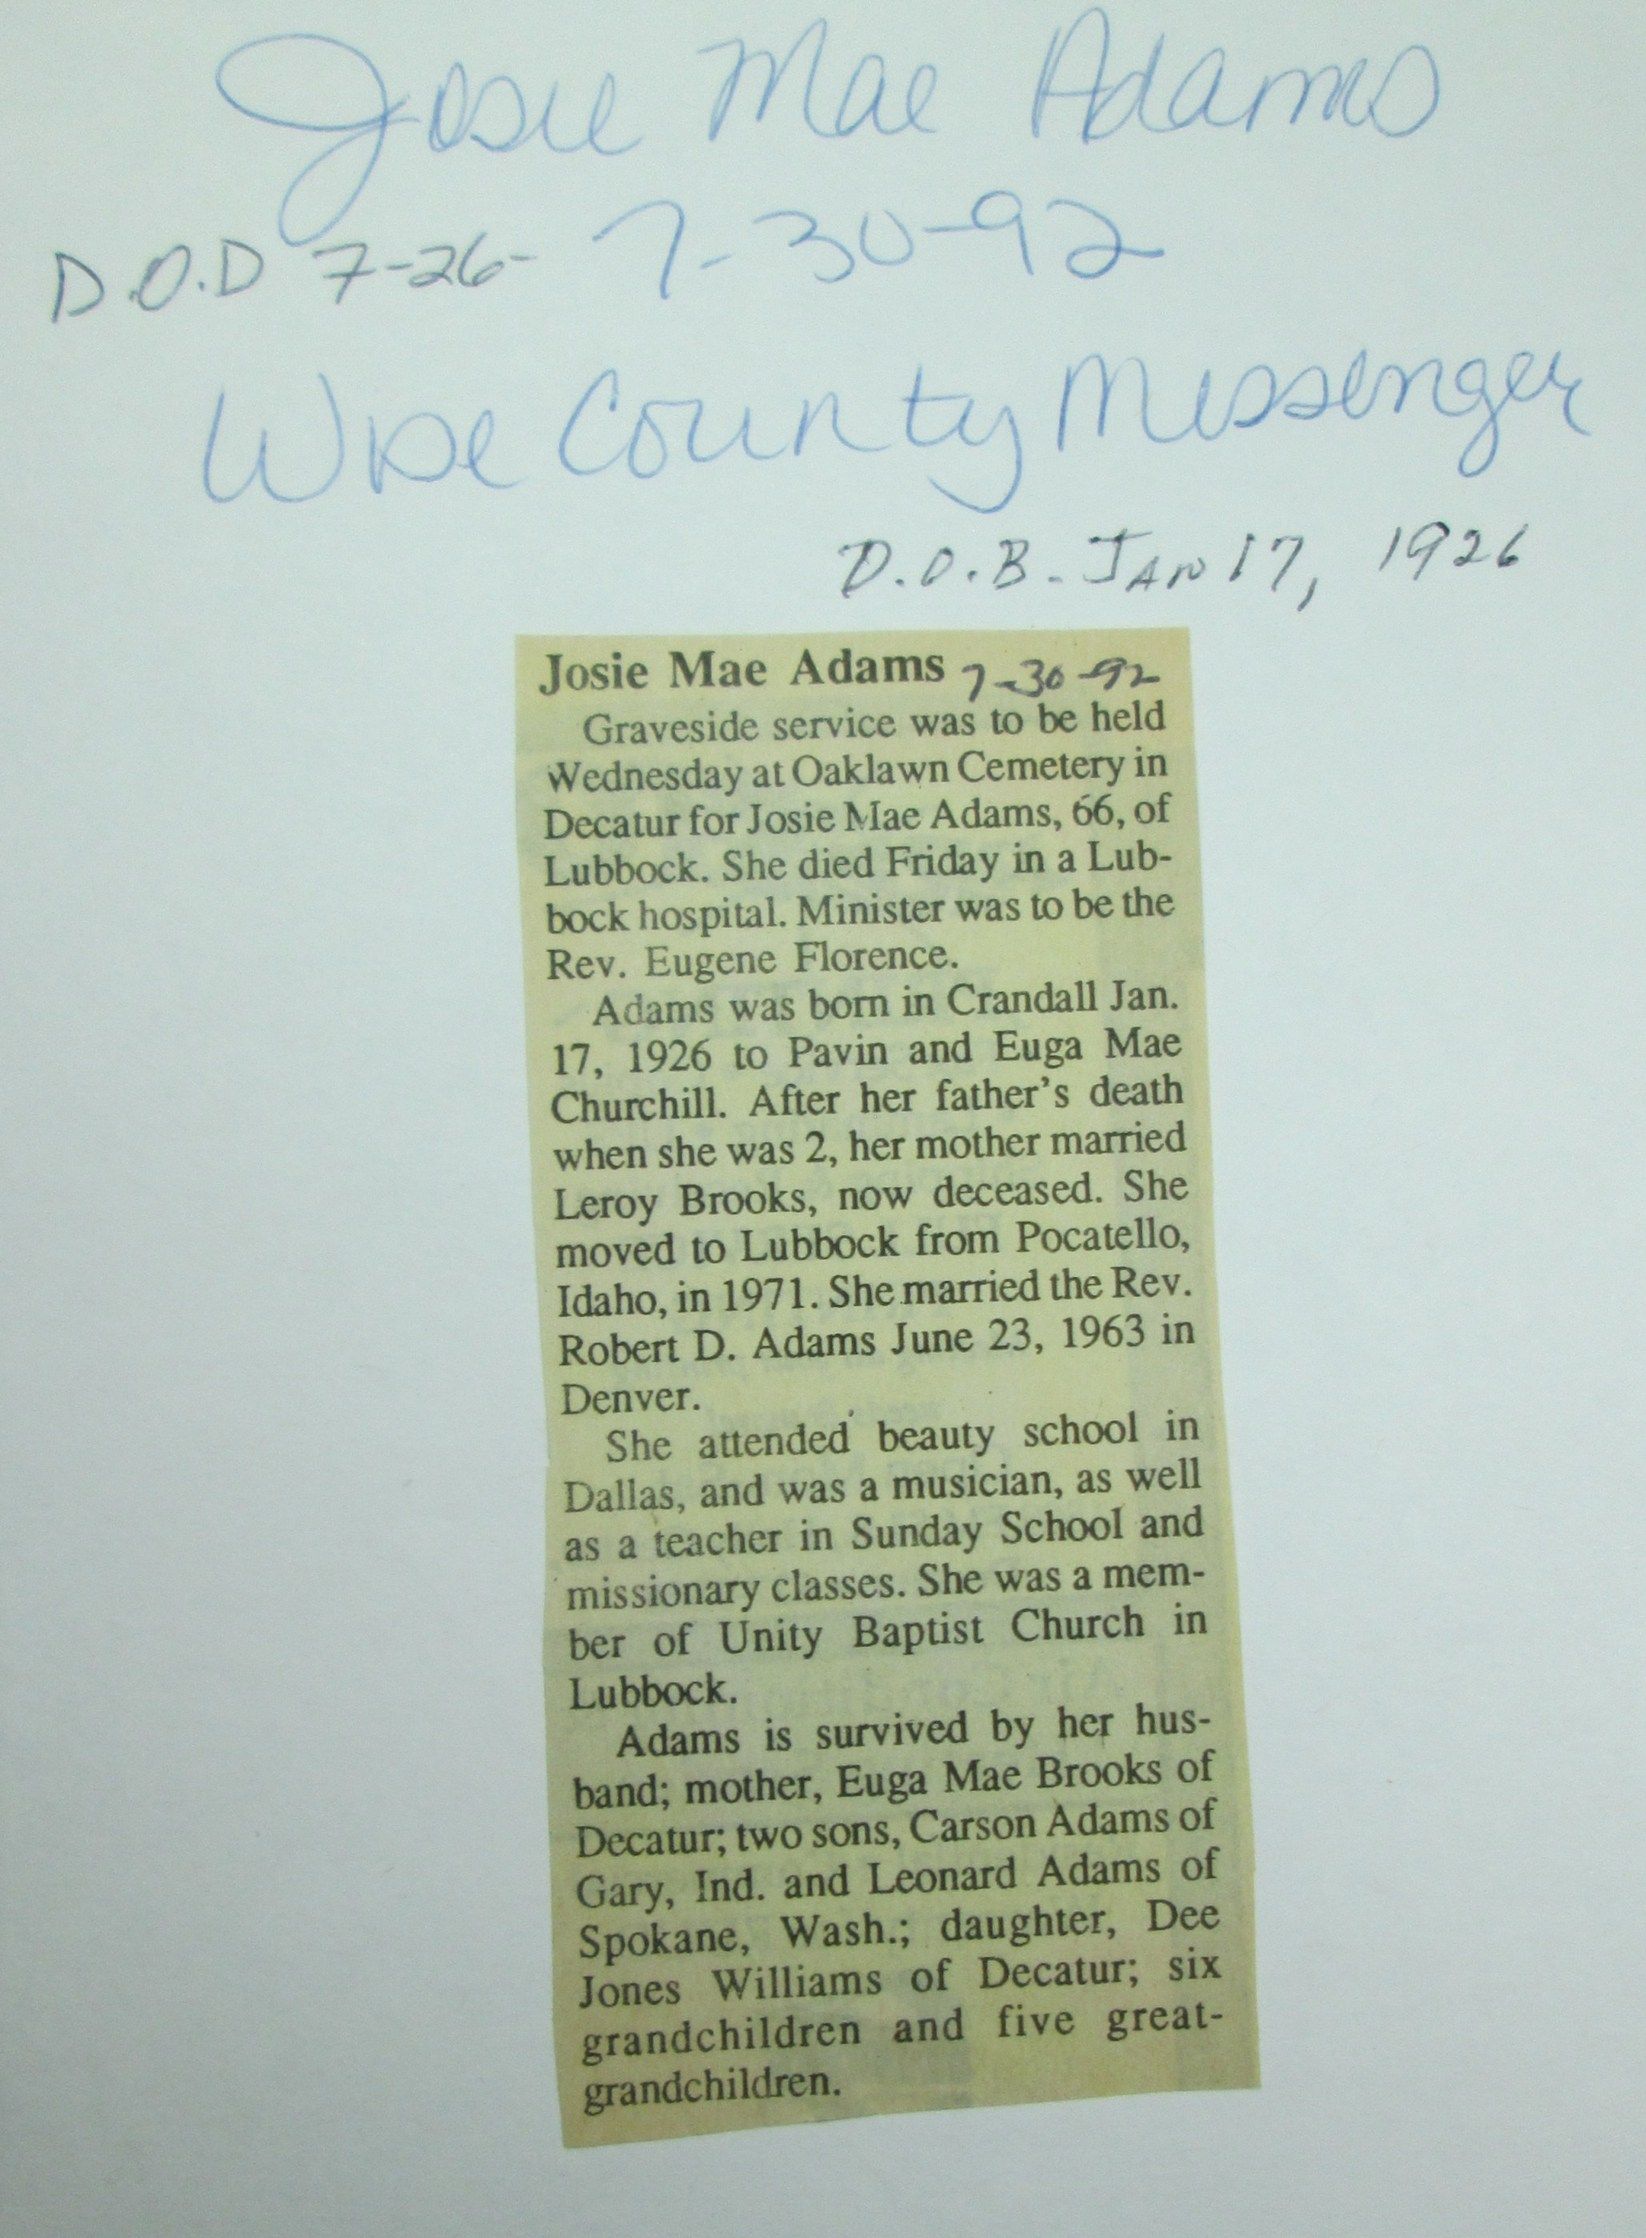 Josie Mae Adams
D.O.D 7-26- 7-30-92
Wise County Messenger
D.O.B. JAN 17, 1926
Josie Mae Adams 7-30-92
Graveside service was to be held
Wednesday at Oaklawn Cemetery in
Decatur for Josie Mae Adams, 66, of
Lubbock. She died Friday in a Lub-
bock hospital. Minister was to be the
Rev. Eugene Florence.
Adams was born in Crandall Jan.
17, 1926 to Pavin and Euga Mae
Churchill. After her father's death
when she was 2, her mother married
Leroy Brooks, now deceased. She
moved to Lubbock from Pocatello,
Idaho, in 1971. She married the Rev.
Robert D. Adams June 23, 1963 in
Denver.
She attended beauty school in
Dallas, and was a musician, as well
as a teacher in Sunday School and
missionary classes. She was a mem-
ber of Unity Baptist Church in
Lubbock.
Adams is survived by her hus-
band; mother, Euga Mae Brooks of
Decatur; two sons, Carson Adams of
Gary, Ind. and Leonard Adams of
Spokane, Wash.; daughter, Dee
Jones Williams of Decatur; six
grandchildren and five great-
grandchildren.